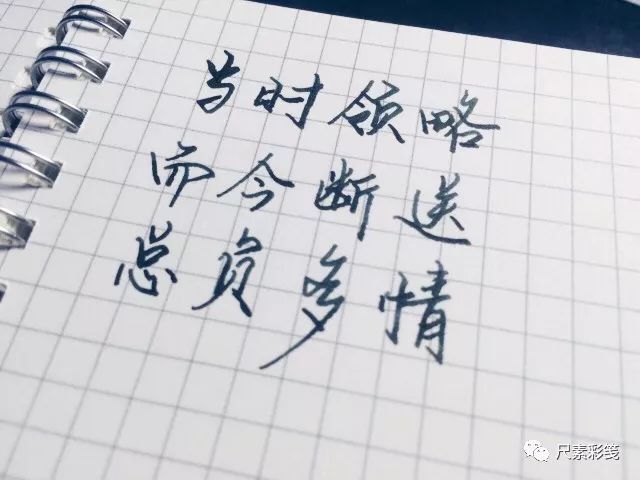 当时领略
而今断送
总负多情
尺素彩笺